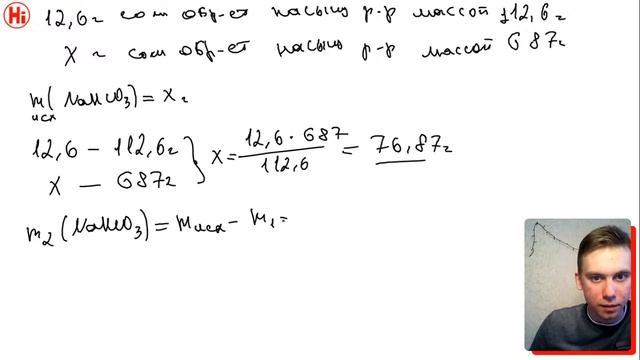 Hi
12,6г соли обр-ет насыщ р-р массой 112,6г
X г соли обр-ет насыщ р-р массой 687г
m исх (NaHCO₃) = X г
12,6 – 112,6г
X – 687г
} X = 12,6 · 687 / 112,6 = 76,87г
m₂(NaHCO₃) = mисх – m₁ =